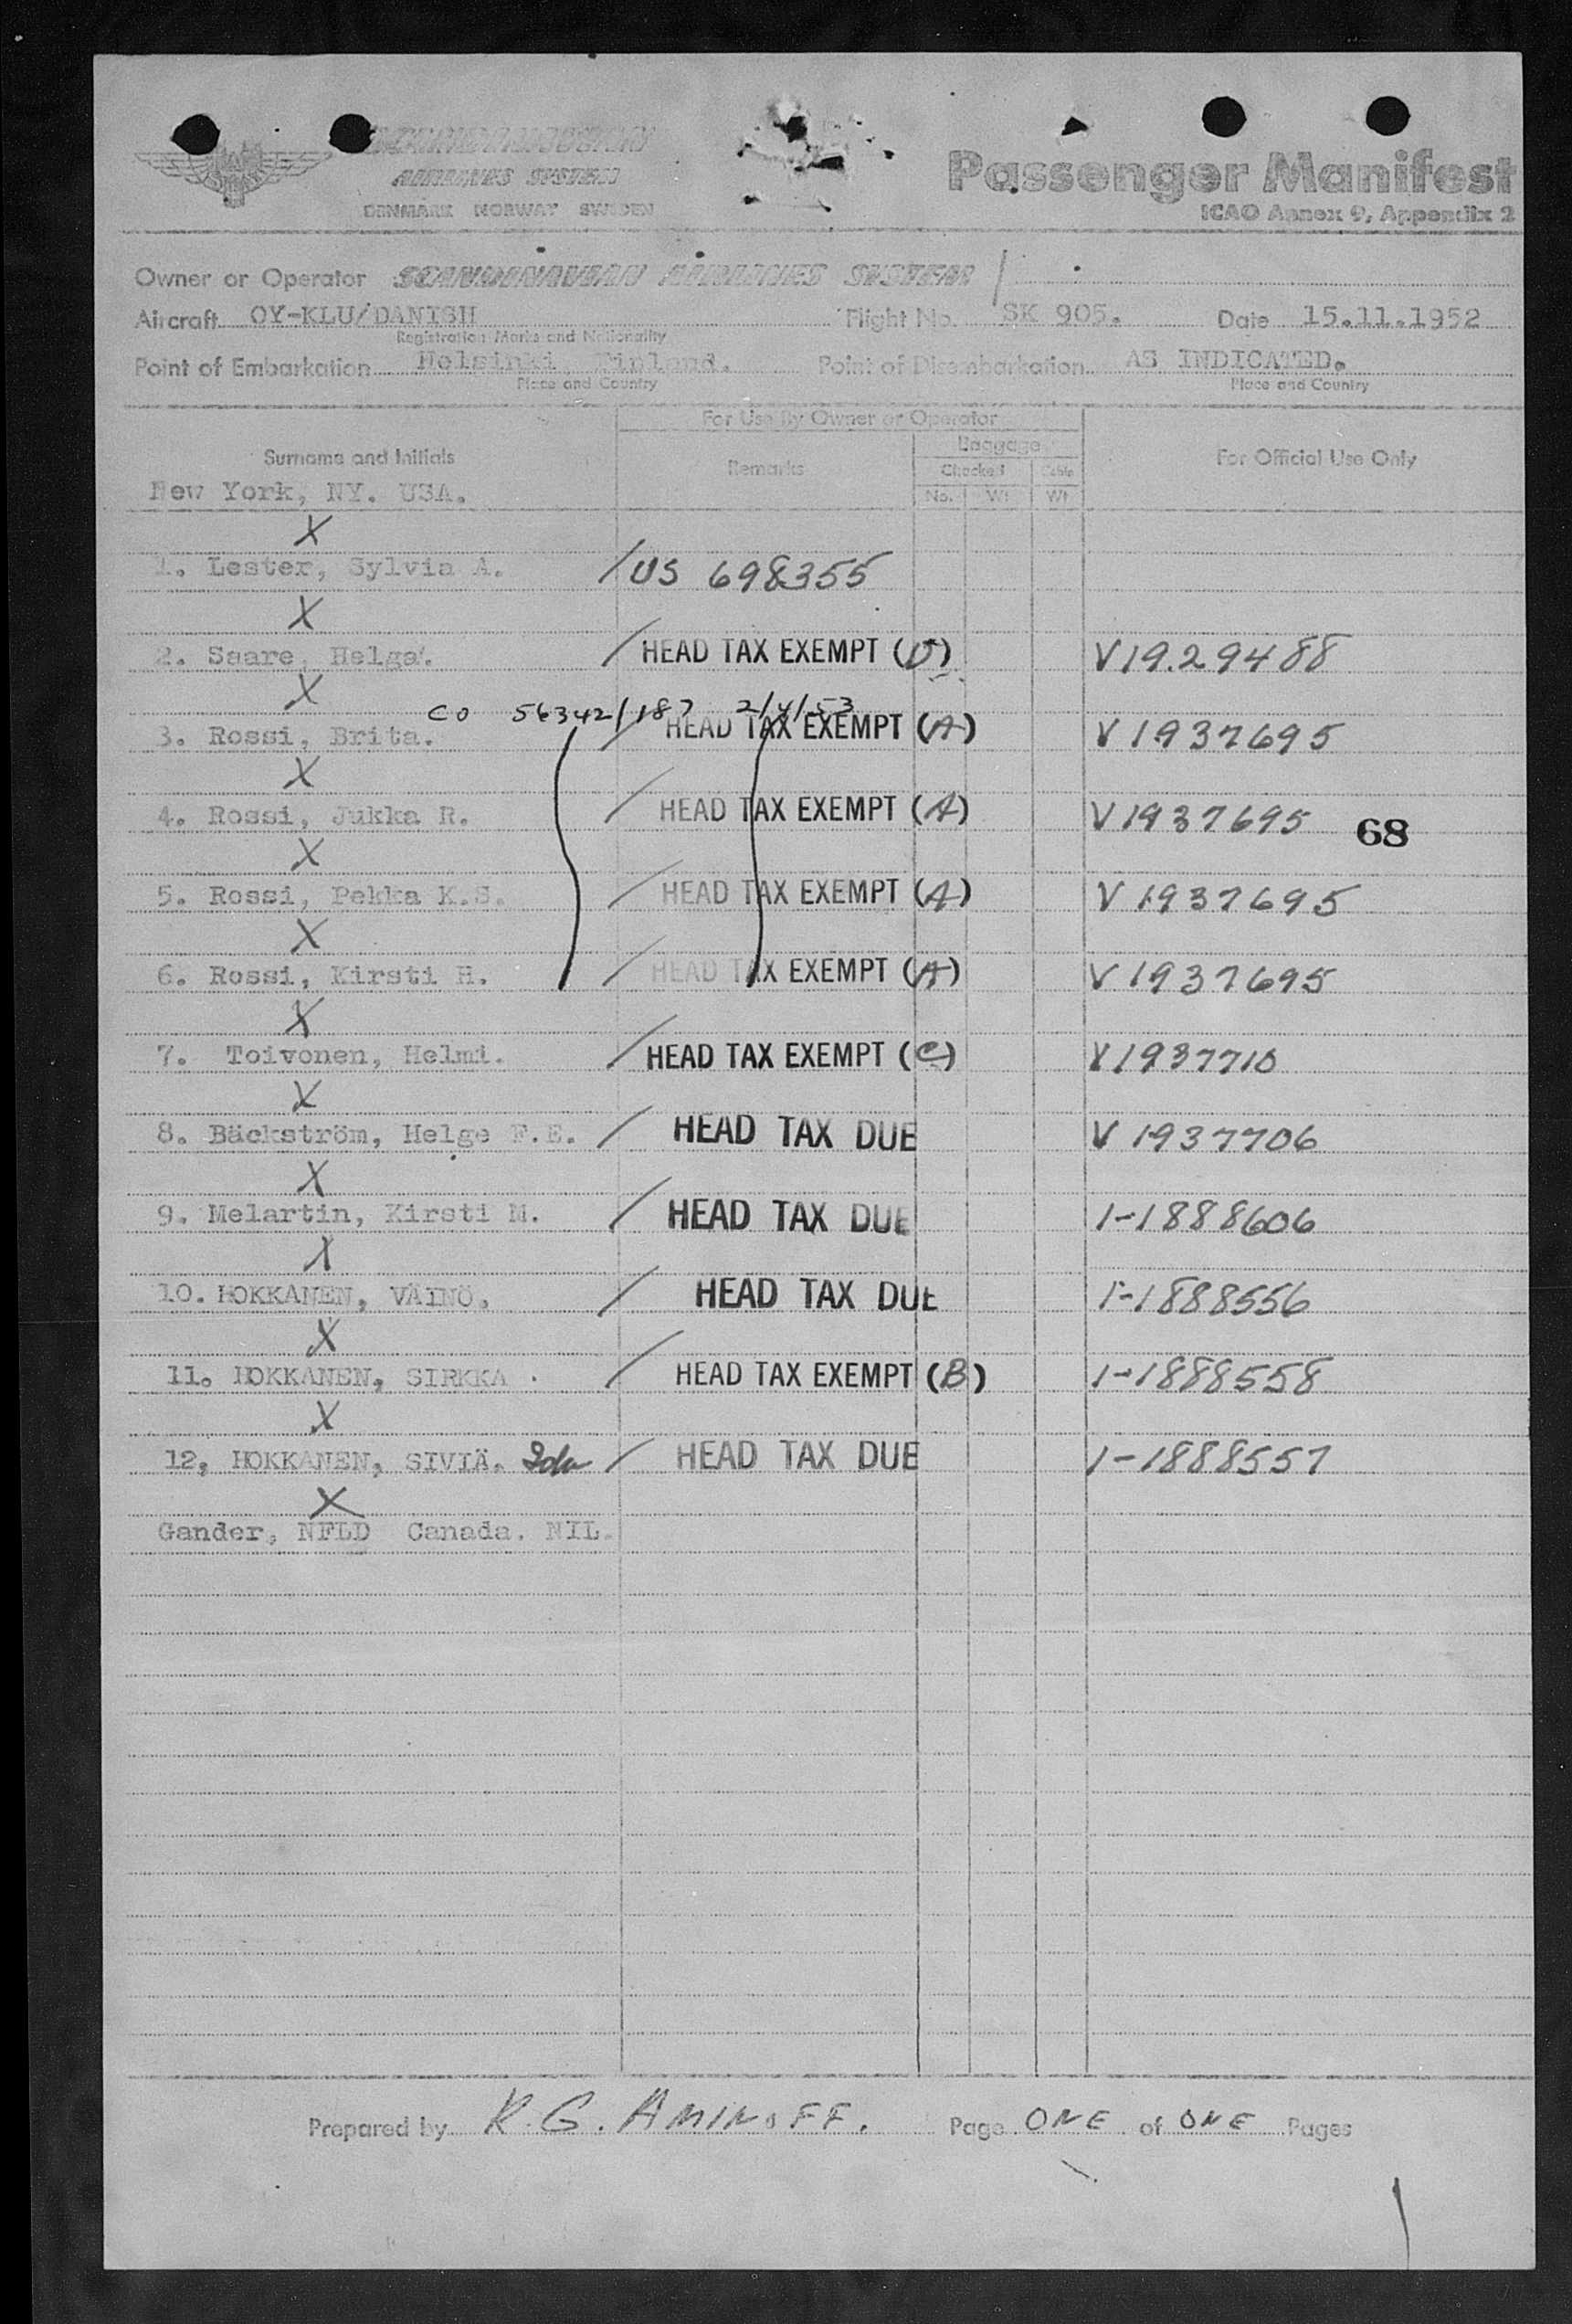 SCANDINAVIAN
AIRLINES SYSTEM
DENMARK NORWAY SWEDEN
Passenger Manifest
ICAO Annex 9, Appendix 2
Owner or Operator SCANDINAVIAN AIRLINES SYSTEM
Aircraft OY-KLU/DANISH Flight No. SK 905. Date 15.11.1952
Registration Marks and Nationality
Point of Embarkation Helsinki, Finland. Point of Disembarkation AS INDICATED.
Place and Country Place and Country
For Use By Owner or Operator
Surname and Initials Remarks Baggage For Official Use Only
Checked Cabin
No. Wt Wt
New York, NY. USA.
X
1. Lester, Sylvia A. / US 698355
X
2. Saare, Helga. / HEAD TAX EXEMPT (D) V19.29488
X
CO 56342/187 2/4/53
3. Rossi, Brita. / HEAD TAX EXEMPT (A) V1937695
X
4. Rossi, Jukka R. / HEAD TAX EXEMPT (A) V1937695 68
X
5. Rossi, Pekka K.S. / HEAD TAX EXEMPT (A) V1937695
X
6. Rossi, Kirsti H. / HEAD TAX EXEMPT (A) V1937695
X
7. Toivonen, Helmi. / HEAD TAX EXEMPT (C) V1937710
X
8. Bäckström, Helge F.E. / HEAD TAX DUE V1937706
X
9. Melartin, Kirsti M. / HEAD TAX DUE 1-1888606
X
10. HOKKANEN, VÄINÖ. / HEAD TAX DUE 1-1888556
X
11. HOKKANEN, SIRKKA . / HEAD TAX EXEMPT (B) 1-1888558
X
12, HOKKANEN, SIVIÄ. Ida / HEAD TAX DUE 1-1888557
X
Gander, NFLD Canada. NIL.
Prepared by R.G. AMINOFF. Page ONE of ONE Pages